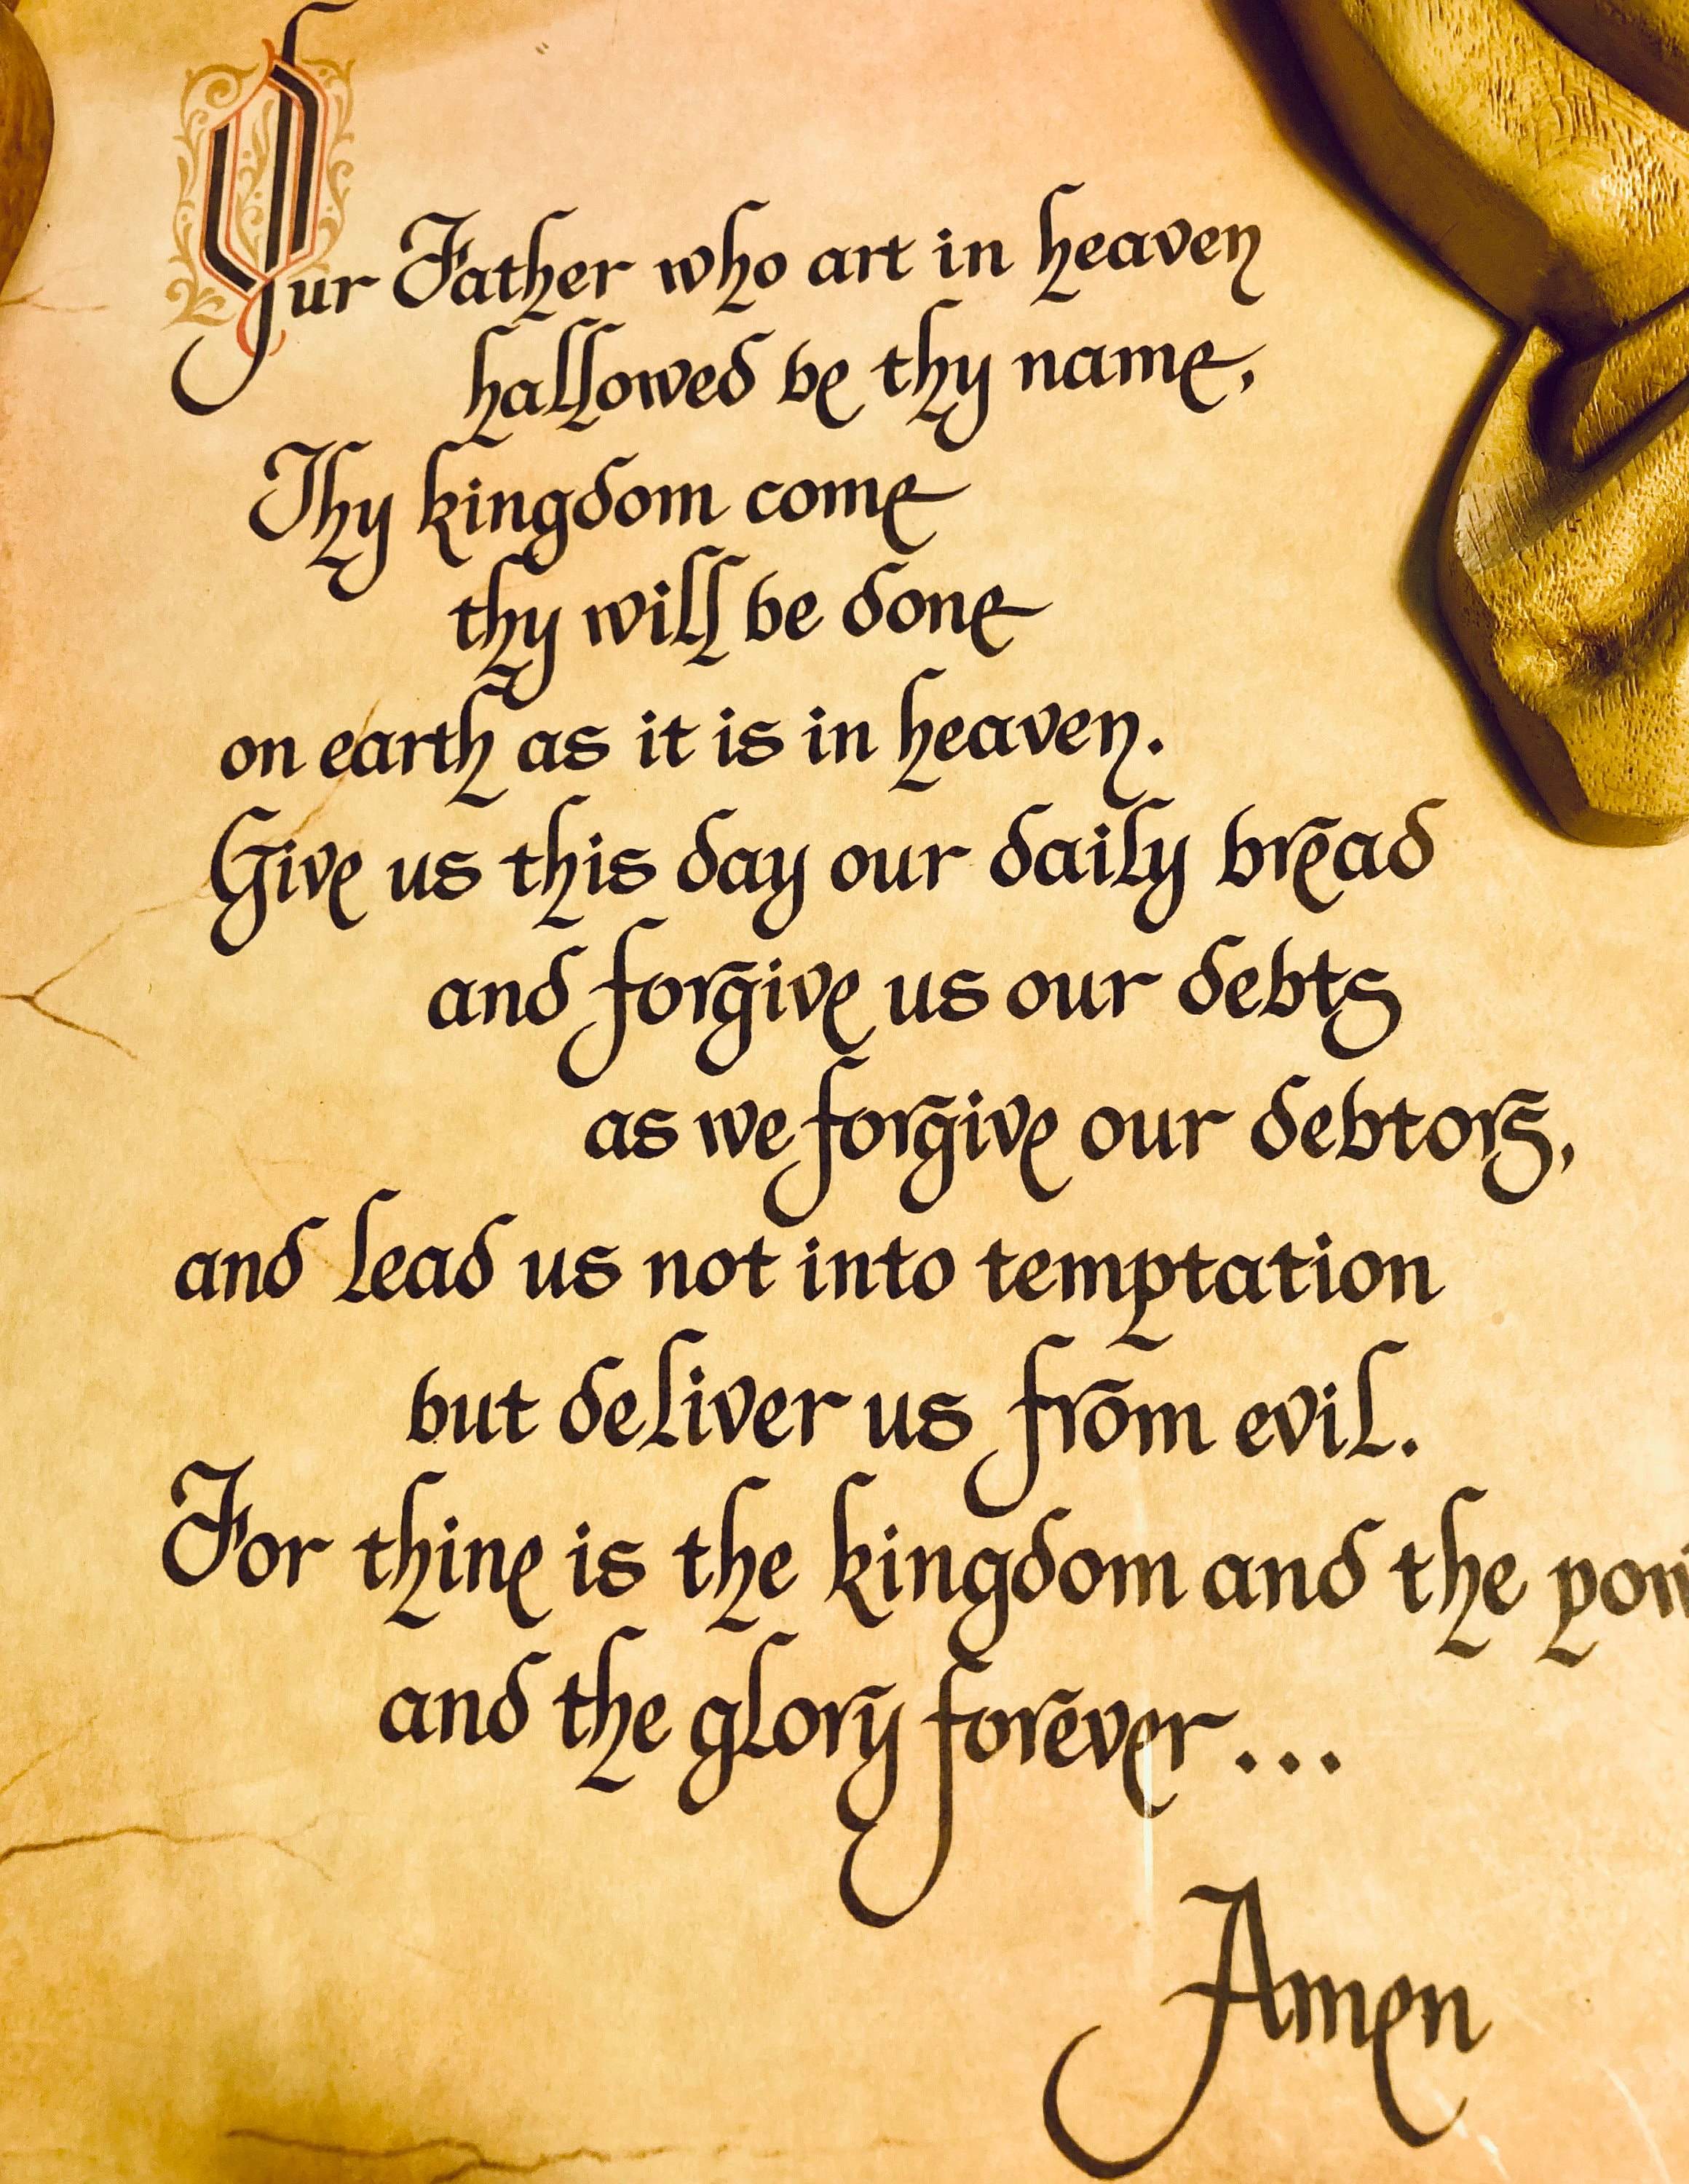 Our Father who art in heaven
hallowed be thy name,
Thy kingdom come
thy will be done
on earth as it is in heaven.
Give us this day our daily bread
and forgive us our debts
as we forgive our debtors,
and lead us not into temptation
but deliver us from evil.
For thine is the kingdom and the
and the glory forever...
Amen